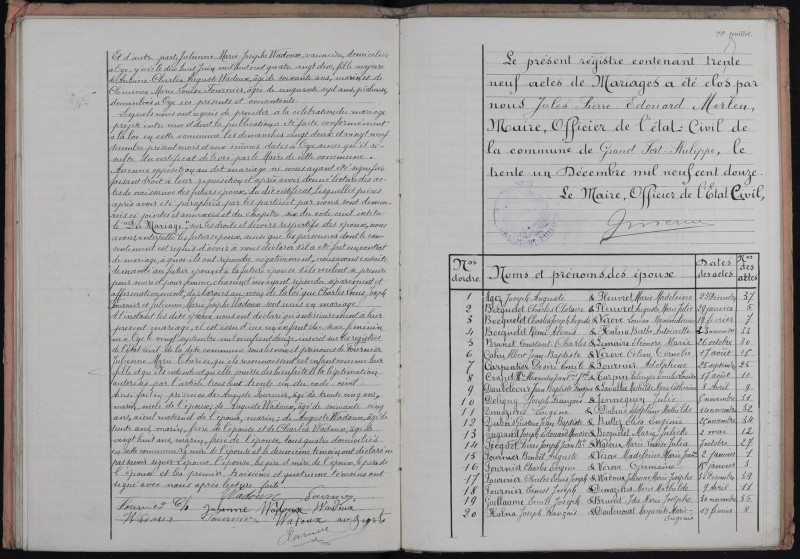 Et d'autre part Julienne Marie Josèphe Wadoux, vannière, domiciliée
à Oye, y née le dix huit Juin mil huit cent quatre vingt dix, fille majeure
d'Antoine Charles Auguste Wadoux, âgé de soixante ans, marin, et de
Clémence Marie Louise Fournier, âgée de cinquante sept ans, pêcheuse,
domiciliés à Oye ici présents et consentants.
Lesquels nous ont requis de procéder à la célébration du mariage
projeté entre eux et dont les publications ont été faites conformément
à la loi en cette commune les dimanches vingt deux et vingt neuf
décembre présent mois et aux mêmes dates à Oye ainsi qu'il ré-
sulte du certificat délivré par le Maire de cette commune.
Aucune opposition au dit mariage ne nous ayant été signifiée
faisant droit à leur réquisition et après avoir donné lecture des ac-
tes de naissance des futurs époux, du dit certificat, lesquelles pièces
après avoir été paraphées par les parties et par nous sont demeu-
rées ci jointes et annexées et du chapitre six du code civil intitu-
lé "du Mariage" sur les droits et devoirs respectifs des époux, nous
avons interpellé les futurs époux, ainsi que les personnes dont le con-
sentement est requis d'avoir à nous déclarer s'il a été fait un contrat
de mariage, à quoi ils ont répondu négativement, nous avons ensuite
demandé au futur époux et à la future épouse s'ils veulent se prendre
pour mari et pour femme, chacun d'eux ayant répondu séparément et
affirmativement, déclarons au nom de la loi que Charles Louis Joseph
Fournier et Julienne Marie Josèphe Wadoux sont unis en mariage.
A l'instant les dits époux nous ont déclaré qu'antérieurement à leur
présent mariage, il est issu d'eux un enfant du sexe féminin
né à Oye le vingt septembre mil neuf cent douze, inscrit sur les registres
de l'état civil de la dite commune sous les nom et prénoms de Fournier
Julienne Marie Thérèse, qu'ils reconnaissent cet enfant comme leur
fille et qu'ils entendent qu'elle jouisse des bénéfices de la légitimation
autorisés par l'article trois cent trente un du code civil.
Ainsi fait en présence de Auguste Fournier, âgé de trente cinq ans,
marin, oncle de l'époux, de Auguste Wadoux, âgé de soixante cinq
ans, grand maternel de l'époux, marin, de Auguste Wadoux, âgé de
trente ans, marin, frère de l'épouse et de Charles Wadoux, âgé de
vingt huit ans, marin, frère de l'épouse, tous quatre domiciliés
en cette commune. La mère de l'époux et le deuxième témoin ont déclaré ne
pas savoir signer. L'époux, l'épouse, les père et mère de l'épouse, le père de
l'époux et les premier, troisième et quatrième témoins ont
signé avec nous après lecture faite.
Wadoux Fournier
Fournier C. Julienne Wadoux Wadoux
Wadoux Fournier Wadoux auguste
Le présent registre contenant trente
neuf actes de Mariages a été clos par
nous Jules Pierre Edouard Merlen,
Maire, Officier de l'état-Civil de
la commune de Grand Fort Philippe, le
trente un Décembre mil neuf cent douze.
Le Maire, Officier de l'Etat Civil,
Nos d'ordre Noms et prénoms des époux Dates des actes Nos des actes
1 Agez Joseph Auguste & Fleuret Marie Madeleine 23 Décembre 37
2 Becquelet Charles Clotaire & Fleuret Auguste Marie Julie 29 janvier 5
3 Becquelet Charles Joseph Auguste & Vérove Louise 19 février 7
4 Becquelet Rémi Alexis & Halna Berthe Antoinette 2 novembre
5 Brunet Constant Charles & Lemaire Eléonore Marie 26 octobre 30
6 Cahu Albert Jean Baptiste & Vérove Céline Cornélie 17 août 18
7 Carpentier Désiré Emile & Fournier Adolphine 25 septembre 25
8 & Carpin 17 août 20
9 Daulecour Jean Baptiste & Lavallée Mathilde Marie Catherine 1 Avril 9
10 Deligny Joseph François & Jennequin Julie 5 novembre 31
11 Dewaghe Eugène & Dubuis Joséphine Mathilde 11 novembre 32
12 Baptiste & Butler Elisa Eugénie 25 novembre 34
13 Joseph Edouard & Becquelet Marie Juliette 2 mai 12
14 Joseph Jean Bte & Wadoux Marie Louise Julia 7 octobre 27
15 Fournier Benoît Auguste & Vérove Madeleine Marie 2 janvier 1
16 Fournier Charles Eugène & Vérove Germaine 15 janvier 3
17 Fournier Charles Louis Joseph & Wadoux Julienne Marie Josèphe 31 Décembre 39
18 Fournier Ernest Joseph & Marie Mathilde 9 Avril 11
19 Guillaume Emile Joseph & Brunet Ida Marie Josèphe 30 novembre 35
20 Halna Joseph François & Daulecourt Marguerite Marie Eugénie 19 février 8